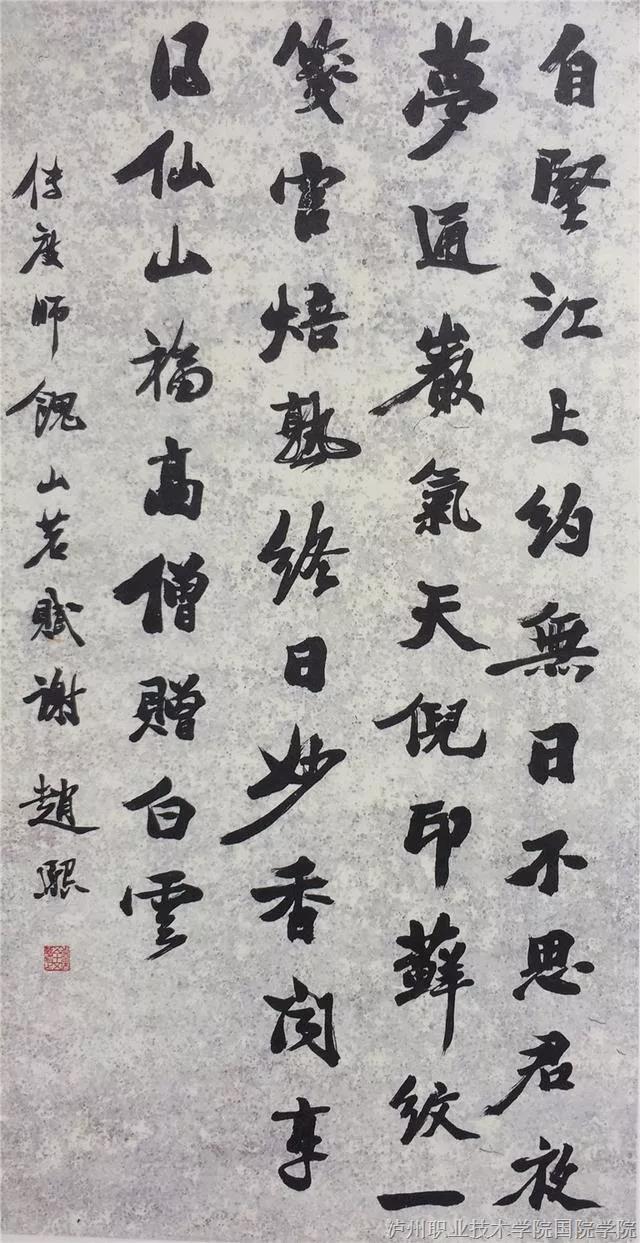 自堅江上約無日不思君夜
夢通巖氣天倪印蘚紋一
箋官焙熟終日妙香聞享
仙山福高僧贈白雲
傳度師餽山茗賦謝 趙熙
泸州职业技术学院国院学院